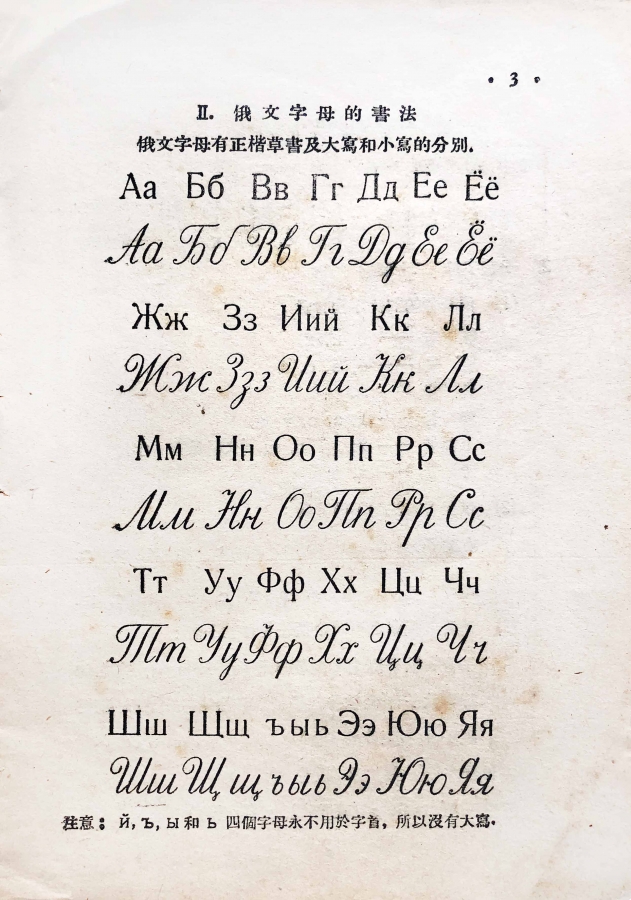 • 3 •
II. 俄文字母的書法
俄文字母有正楷草書及大寫和小寫的分别.
Аа Бб Вв Гг Дд Ее Ёё
Аа Бб Вв Гг Дд Ее Ёё
Жж Зз Иий Кк Лл
Жж Зз Иий Кк Лл
Мм Нн Оо Пп Рр Сс
Мм Нн Оо Пп Рр Сс
Тт Уу Фф Хх Цц Чч
Тт Уу Фф Хх Цц Чч
Шш Щщ ъыь Ээ Юю Яя
Шш Щщ ъыь Ээ Юю Яя
注意: й, ъ, ы 和 ь 四個字母永不用於字首, 所以沒有大寫.